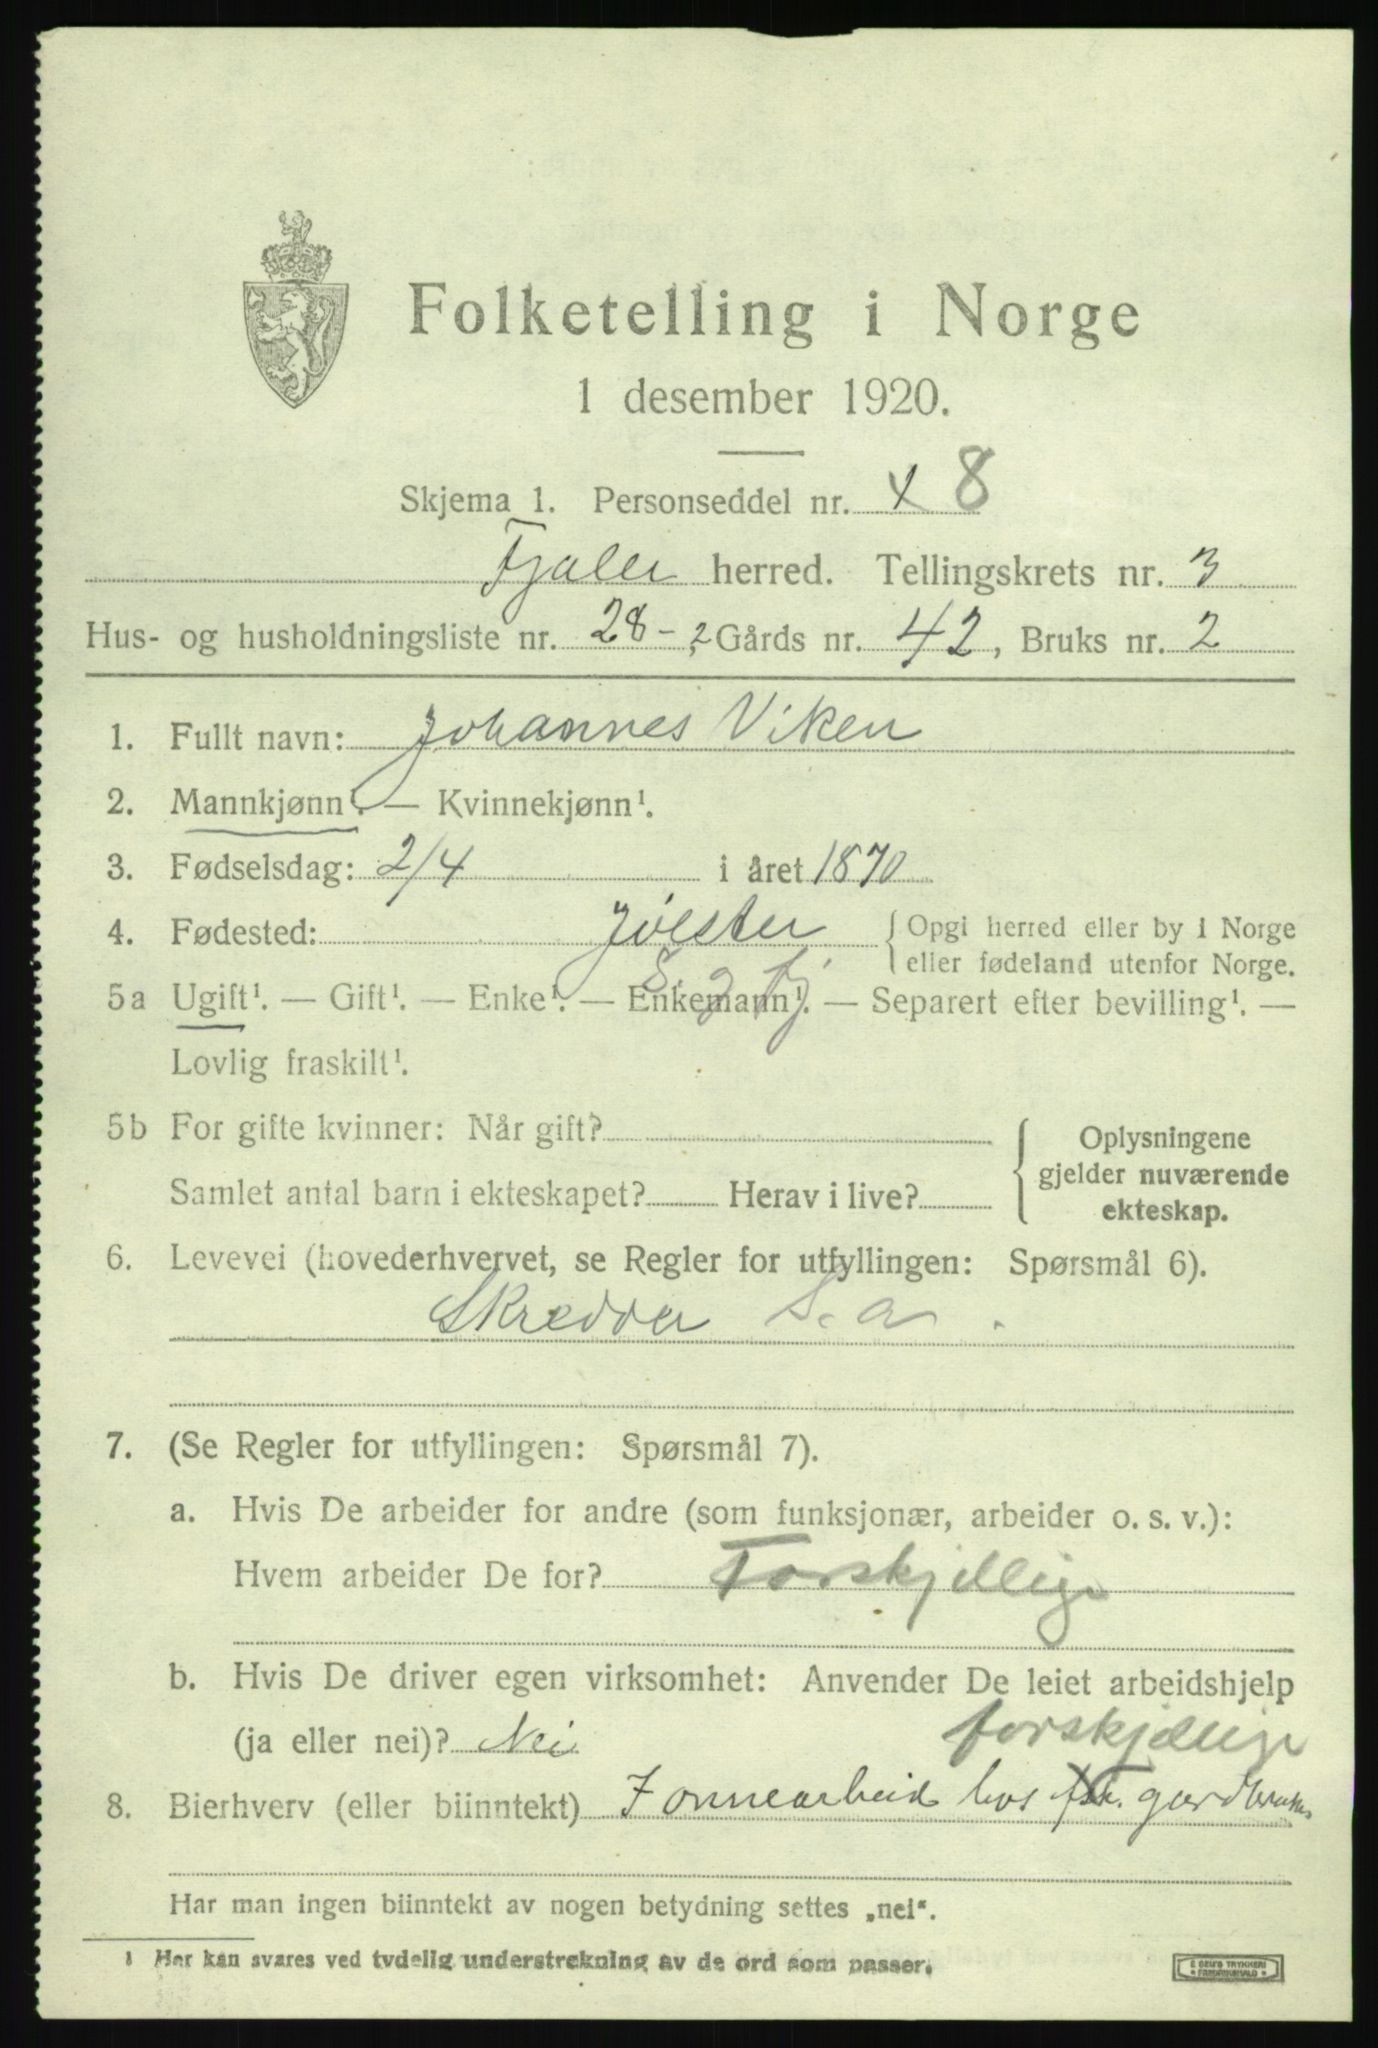 Folketelling i Norge
1 desember 1920.
Skjema 1. Personseddel nr. 8
Fjaler herred. Tellingskrets nr. 3
Hus- og husholdningsliste nr. 28-2, Gårds nr. 42, Bruks nr. 2
1. Fullt navn: Johannes Viken
2. Mannkjønn¹. — Kvinnekjønn¹.
3. Fødselsdag: 2/4 i året 1870
4. Fødested: Jölster { Opgi herred eller by i Norge
eller fødeland utenfor Norge.
S. g fj
5a Ugift¹. — Gift¹. — Enke¹. — Enkemann¹. — Separert efter bevilling¹. —
Lovlig fraskilt¹.
5b For gifte kvinner: Når gift?
Samlet antal barn i ekteskapet? Herav i live?
Oplysningene
gjelder nuværende
ekteskap.
6. Levevei (hovederhvervet, se Regler for utfyllingen: Spørsmål 6).
Skredder S. a.
7. (Se Regler for utfyllingen: Spørsmål 7).
a. Hvis De arbeider for andre (som funksjonær, arbeider o. s. v.):
Hvem arbeider De for? Forskjellige
b. Hvis De driver egen virksomhet: Anvender De leiet arbeidshjelp
(ja eller nei)? Nei
forskjellige
8. Bierhverv (eller biinntekt) Jonnearbeid hos fsk. gardbruker
Har man ingen biinntekt av nogen betydning settes „nei“.
¹ Her kan svares ved tydelig understrekning av de ord som passer.
E SEM'S TRYKKERI
FREDRIKSHALD